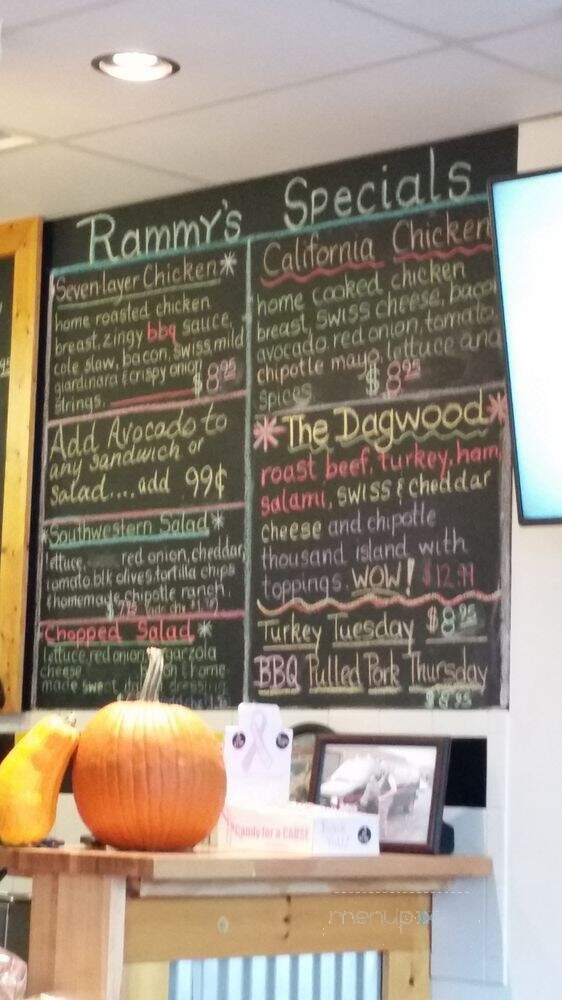 Rammy's Specials
Seven layer Chicken*
home roasted chicken
breast, zingy bbq sauce
cole slaw, bacon, swiss, mild
giardinara & crispy onion
strings. $8.95
Add Avocado to
any sandwich or
salad.... add 99¢
*Southwestern Salad*
lettuce, red onion, cheddar,
tomato, blk olives, tortilla chips
& homemade chipotle ranch.
Chopped Salad*
lettuce, red onion,
cheese
made
California Chicken
home cooked chicken
breast, swiss cheese, bacon
avocado red onion, tomato,
chipotle mayo, lettuce and
spices $8.95
*The Dagwood*
roast beef, turkey, ham,
salami, swiss & cheddar
cheese and chipotle
thousand island with
toppings. WOW! $12.99
Turkey Tuesday $8.95
BBQ Pulled Pork Thursday
$8.95
Candy for a CAUSE
menupix